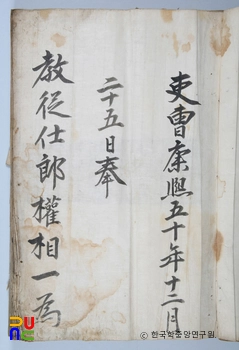 吏曹康熙五十年十二月
二十五日奉
教從仕郎權相一爲
ⓒ 한국학중앙연구원